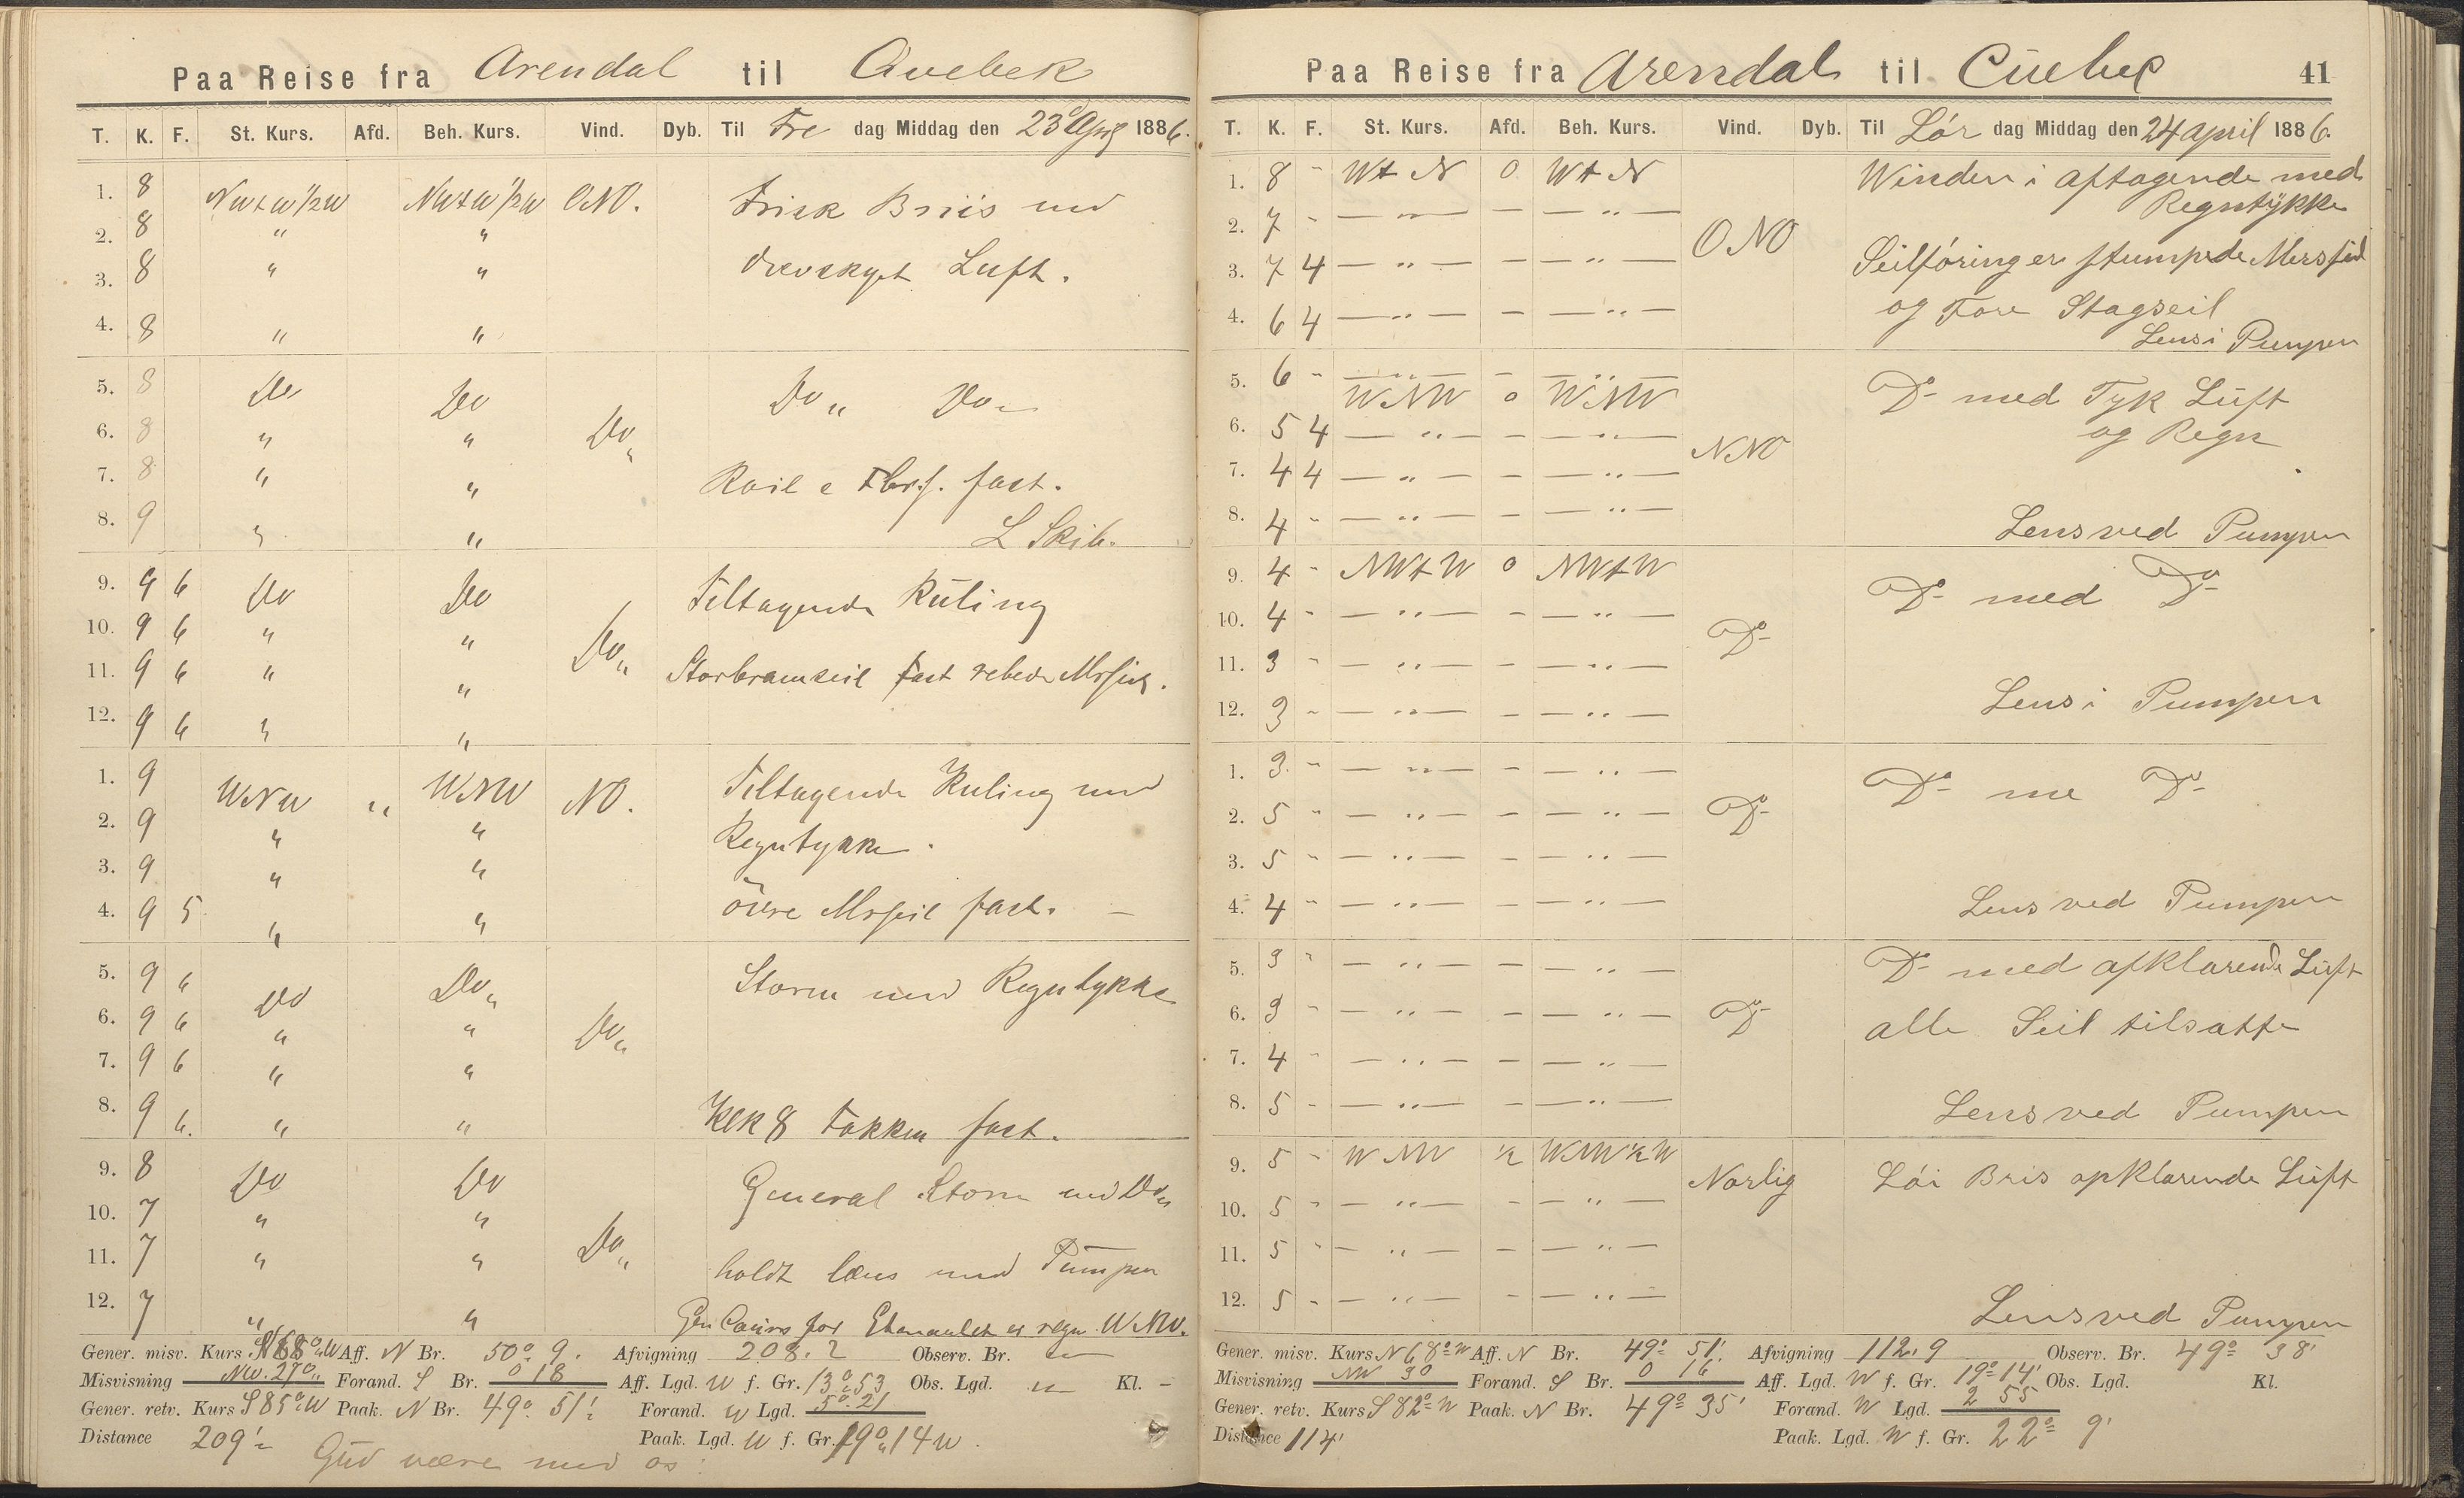 Paa Reise fra Arendal til Quebek
T. K. F. St. Kurs. Afd. Beh. Kurs. Vind. Dyb. Til Fre dag Middag den 23d April 1886.
1. 8 NWtW½W NWtW½W ONO. Frisk Briis med
2. 8 " "
3. 8 " " overskyet Luft.
4. 8 " "
5. 8 Do Do Do " Do "
6. 8 " " Do "
7. 8 " " Roil fast.
8. 9 " " L Skib.
9. 9 6 Do Do Tiltagende Kuling
10. 9 6 " " Do "
11. 9 6 " " Storbramseil fast rebede Mrseil.
12. 9 6 " "
1. 9 WNW " WNW NO. Tiltagende Kuling med
2. 9 " " Regntykke.
3. 9 " "
4. 9 5 " " övre Mrseil fast. —
5. 9 6 Do Do " Storm med Regntykke
6. 9 6 " " Do "
7. 9 6 " "
8. 9 6. " " Klk 8 Fokken fast.
9. 8 Do Do General Storm med Do "
10. 7 " "
11. 7 " " Do " holdt læns med Pumpen
12. 7 " " Gen Cours for Etmaalet er regn. WNW.
Gener. misv. Kurs N 68° W Aff. N Br. 50° 9. Afvigning 208.2 Observ. Br. "
Misvisning NW. 27° " Forand. S Br. 0 18 Aff. Lgd. W f. Gr. 13° 53 Obs. Lgd. " Kl. -
Gener. retv. Kurs S 85° W Paak. N Br. 49° 51' Forand. W Lgd. 5° 21
Distance 209' Paak. Lgd. W f. Gr. 19° 14 W.
Gud være med os.
Paa Reise fra Arendal til Cuebec 41
T. K. F. St. Kurs. Afd. Beh. Kurs. Vind. Dyb. Til Lör dag Middag den 24 april 1886.
1. 8 " Wt N 0 Wt N Winden i aftagende med
Regntykke
2. 7 " — " — — — " — ONO
3. 7 4 — " — — — " — Seilföring er stumpede Mersseil
4. 6 4 — " — — — " — og Fore Stagseil
Lens i Pumpen
5. 6 " — " — — — " —
WNW 0 WNW Do med Tyk Luft
6. 5 4 — " — — — " — og Regn
7. 4 4 — " — — — " — NNO
8. 4 " — " — — — " — Lens ved Pumpen
9. 4 " NWtW 0 NWtW Do med Do
10. 4 " — " — — — " — Do
11. 3 " — " — — — " —
12. 3 " — " — — — " — Lens i Pumpen
1. 3 " — " — — — " — Do me Do
2. 5 " — " — — — " — Do
3. 5 " — " — — — " —
4. 4 " — " — — — " — Lens ved Pumpen
5. 3 " — " — — — " — Do med afklarende Luft
6. 3 " — " — — — " — Do alle Seil tilsatte
7. 4 " — " — — — " —
8. 5 " — " — — — " — Lens ved Pumpen
9. 5 " W NW ½ WNW½W Norlig Löi Bris opklarende Luft
10. 5 " — " — — — " —
11. 5 " — " — — — " —
12. 5 " — " — — — " — Lens ved Pumpen
Gener. misv. Kurs N 68° W Aff. N Br. 49° 51' Afvigning 112,9 Observ. Br. 49° 38'
Misvisning NW 30 Forand. S Br. 0 16 Aff. Lgd. W f. Gr. 19° 14' Obs. Lgd. Kl.
Gener. retv. Kurs S 82° W Paak. N Br. 49° 35' Forand. W Lgd. 2 55
Distance 114' Paak. Lgd. W f. Gr. 22° 9'